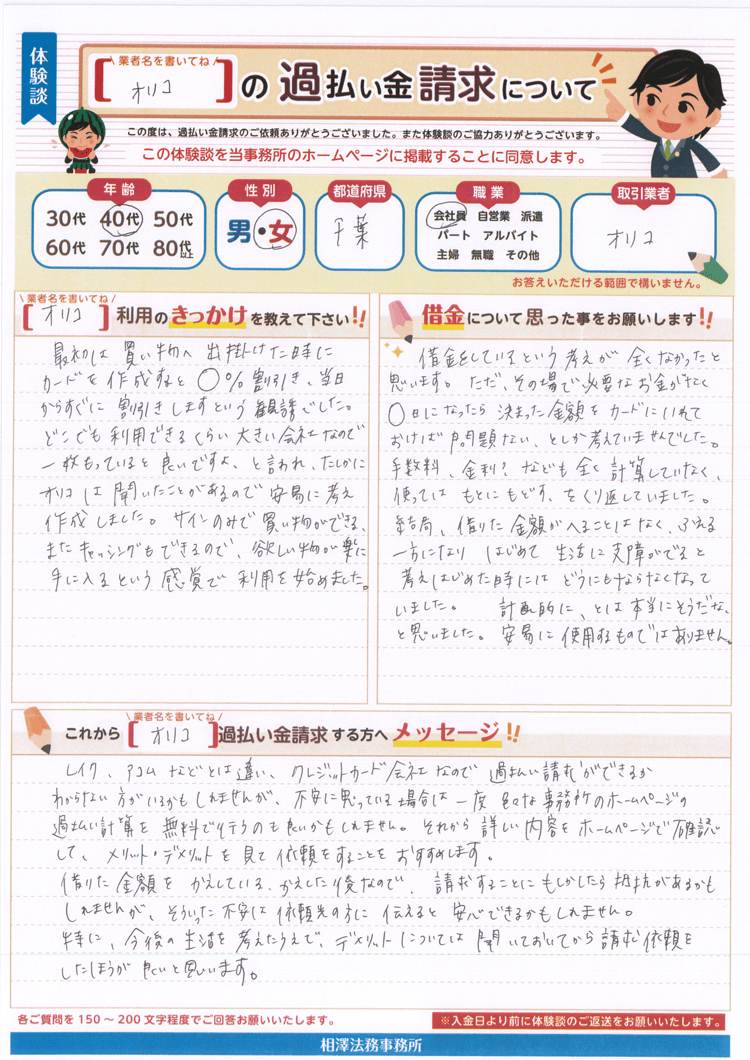 体験談
業者名を書いてね
[オリコ]の過払い金請求について
この度は、過払い金請求のご依頼ありがとうございました。また体験談のご協力ありがとうございます。
この体験談を当事務所のホームページに掲載することに同意します。
年齢
30代 40代 50代
60代 70代 80代以上
性別
男・女
都道府県
千葉
職業
会社員 自営業 派遣
パート アルバイト
主婦 無職 その他
取引業者
オリコ
お答えいただける範囲で構いません。
業者名を書いてね
[オリコ]利用のきっかけを教えて下さい!!
最初は買い物へ出掛けた時に
カードを作成すると〇%割引き、当日
からすぐに割引きしますという観誘でした。
どこでも利用できるくらい大きい会社なので
一枚もっていると良いですよ、と言われ、たしかに
オリコは聞いたことがあるので安易に考え
作成しました。サインのみで買い物ができる、
またキャッシングもできるので、欲しい物が楽に
手に入るという感覚で利用を始めました。
借金について思った事をお願いします!!
借金をしているという考えが全くなかったと
思います。ただ、その場で必要なお金がなく
〇日になったら決まった金額をカードにいれて
おけば問題ない、としか考えていませんでした。
手数料、金利?なども全く計算していなく、
使ってはもとにもどす、をくり返していました。
結局、借りた金額がへることはなく、ふえる
一方になりはじめて生活に支障がでると
考えはじめた時にはどうにもならなくなって
いました。 計画的に、とは本当にそうだな、
と思いました。安易に使用するものではありません。
業者名を書いてね
これから[オリコ]過払い金請求する方へメッセージ!!
レイク、アコムなどとは違い、クレジットカード会社なので過払い請求ができるか
わからない方がいるかもしれませんが、不安に思っている場合は一度色々な事務所のホームページの
過払い計算を無料で行うのも良いかもしれません。それから詳しい内容をホームページで確認
して、メリット・デメリットを見て依頼をすることをおすすめします。
借りた金額をかえしている、かえした後なので、請求することにもしかしたら抵抗があるかも
しれませんが、そういった不安は依頼先の方に伝えると安心できるかもしれません。
特に、今後の生活を考えたうえで、デメリットについては聞いておいてから請求依頼を
したほうが良いと思います。
各ご質問を150～200文字程度でご回答お願いいたします。
※入金日より前に体験談のご返送をお願いいたします。
相澤法務事務所